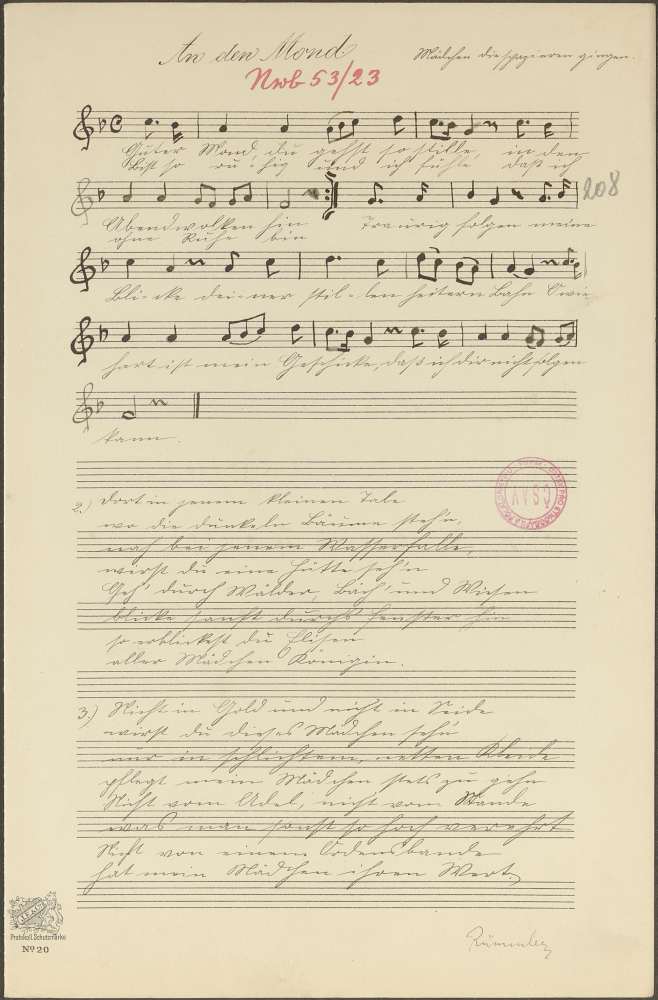 An den Mond
Mädchen die spazieren gingen.
Nrb 53/23
Guter Mond, du gehst so stille, in den
Bist so ru-hig und ich fühle daß ich
208
Abendwolken hin Traurig folgen meine
ohne Ruhe bin
Bli-cke dei-ner stil-len heitern Bahn O wie
hart ist mein Geschicke, daß ich dir nicht folgen
kann.
2.) Dort in jenem kleinen Tale
wo die dunkeln Bäume steh'n,
nah bei jenem Wasserfalle,
wirst du eine Hütte seh'n
Geh' durch Wälder, Bäch' und Wiesen
blicke sanft durchs Fenster hin
so erblickest du Elisen
aller Mädchen Königin.
3.) Nicht in Gold und nicht in Seide
wirst du dieses Mädchen sehn
nur in schlichtem, netten Kleide
pflegt mein Mädchen stets zu gehn
Nicht vom Adel, nicht vom Stande
was man sonst so hoch verehrt
Nicht von einem Ordensbande
hat mein Mädchen ihren Wert.
Protokoll. Schutzmarke
No 20